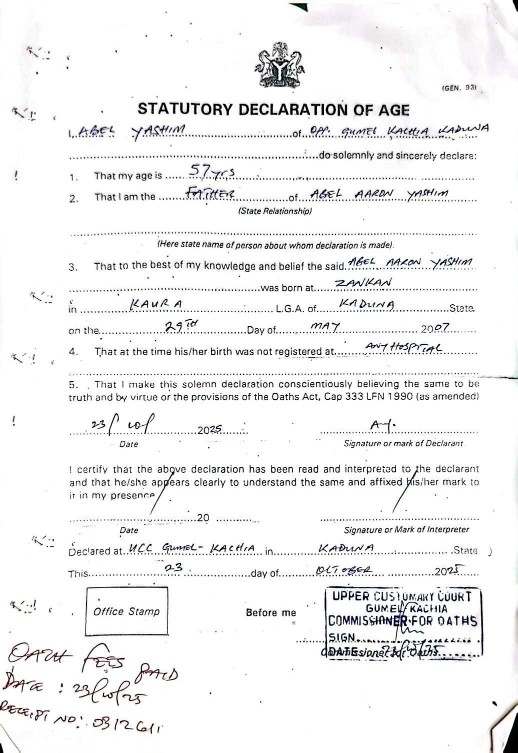 (GEN. 93)
STATUTORY DECLARATION OF AGE
I, ABEL YASHIM of OPP. GUMEL KACHIA KADUNA
do solemnly and sincerely declare:
1. That my age is 57yrs
2. That I am the FATHER of ABEL AARON YASHIM
(State Relationship)
(Here state name of person about whom declaration is made).
3. That to the best of my knowledge and belief the said ABEL AARON YASHIM
was born at ZANKAN
in KAURA L.G.A. of KADUNA State
on the 29TH Day of MAY 2007
4. That at the time his/her birth was not registered at ANY HOSPITAL
5. That I make this solemn declaration conscientiously believing the same to be
truth and by virtue or the provisions of the Oaths Act, Cap 333 LFN 1990 (as amended)
23/10/ 2025 A.Y.
Date Signature or mark of Declarant
I certify that the above declaration has been read and interpreted to the declarant
and that he/she appears clearly to understand the same and affixed his/her mark to
it in my presence
20
Date Signature or Mark of Interpreter
Declared at UCC GUMEL-KACHIA in KADUNA State
This 23 day of OCTOBER 2025
Office Stamp
Before me
UPPER CUSTOMARY COURT
GUMEL/KACHIA
COMMISSIONER FOR OATHS
SIGN
DATE 23/10/25
OATH FEES PAID
DATE: 23/10/25
RECEIPT NO: 0312611